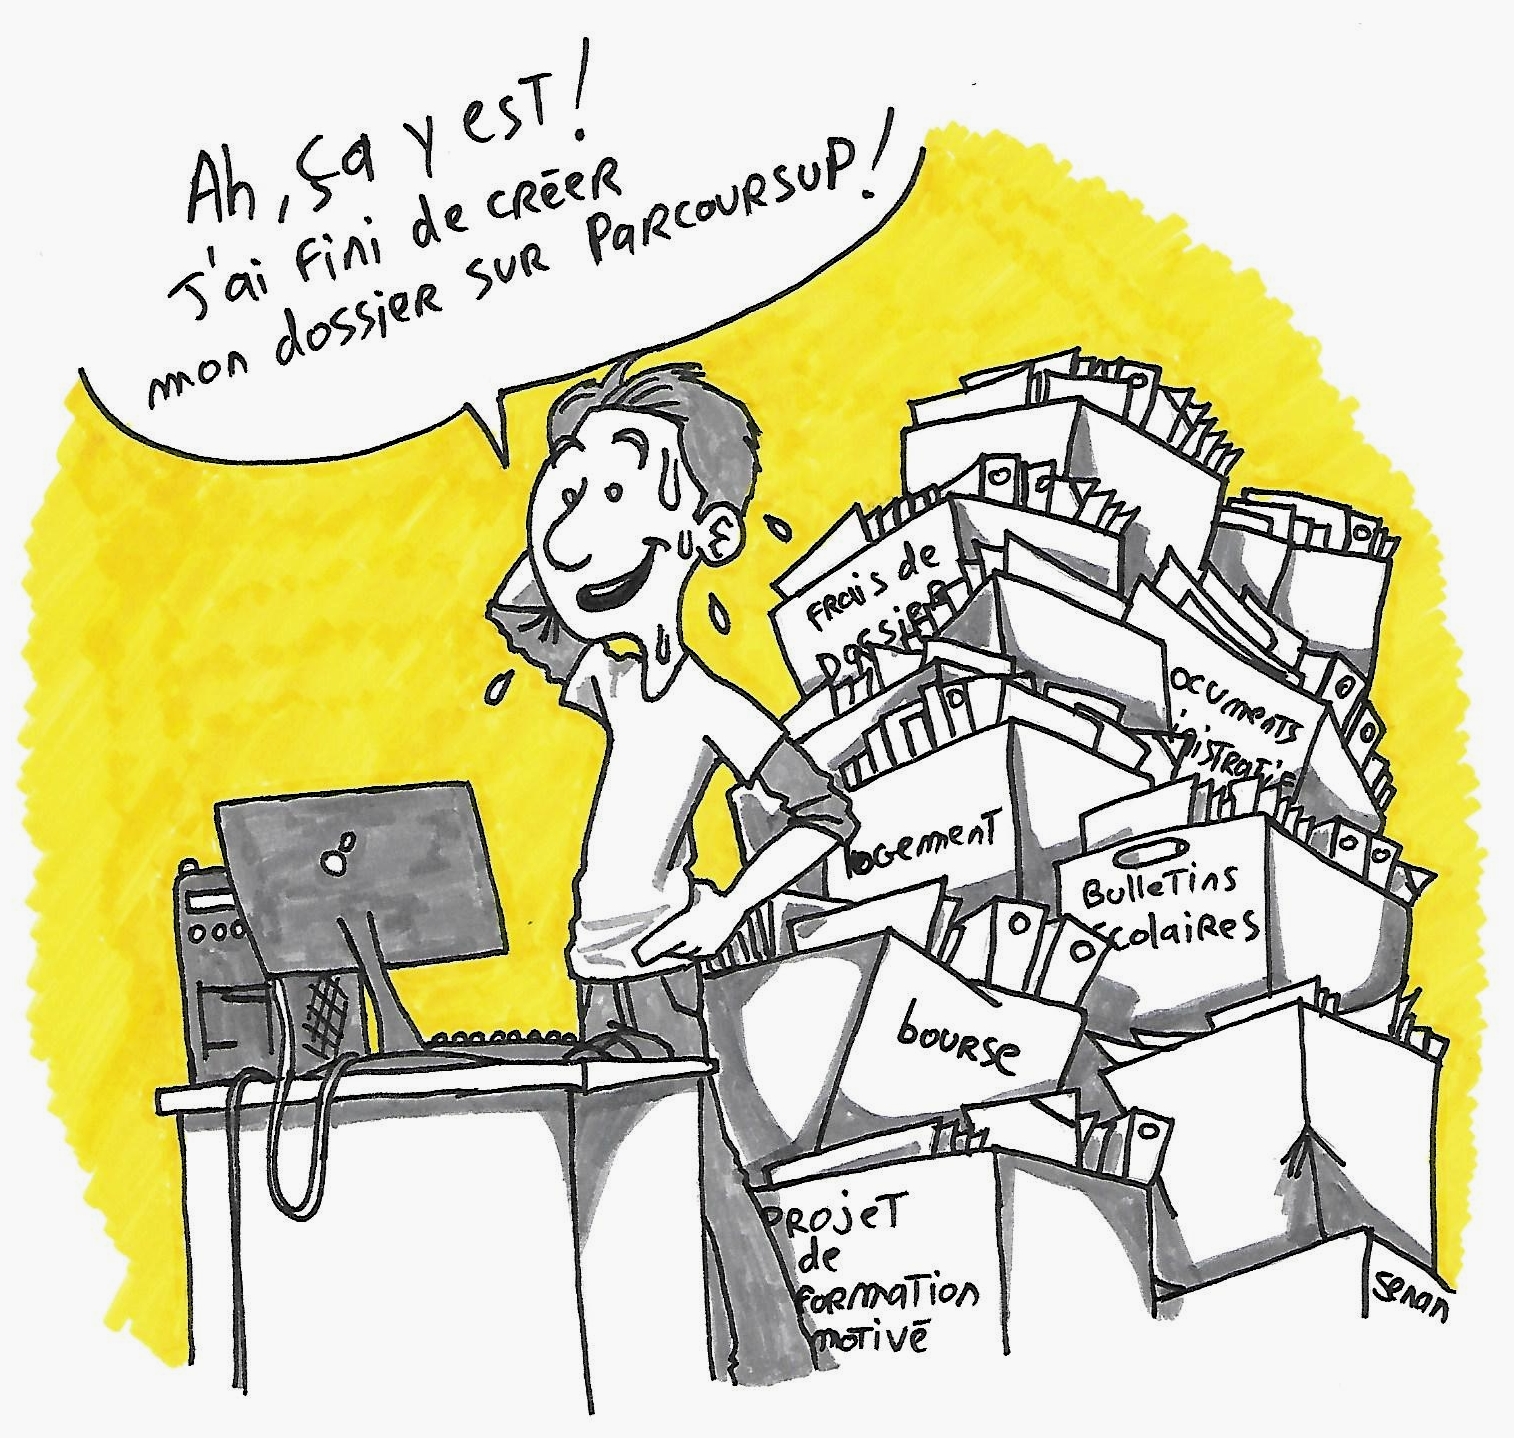 Ah, ça y est!
J'ai fini de créer
mon dossier sur Parcoursup!
Frais de
Dossier
ocuments
inistratif
logement
Bulletins
scolaires
bourse
Projet
de
formation
motivé
senan